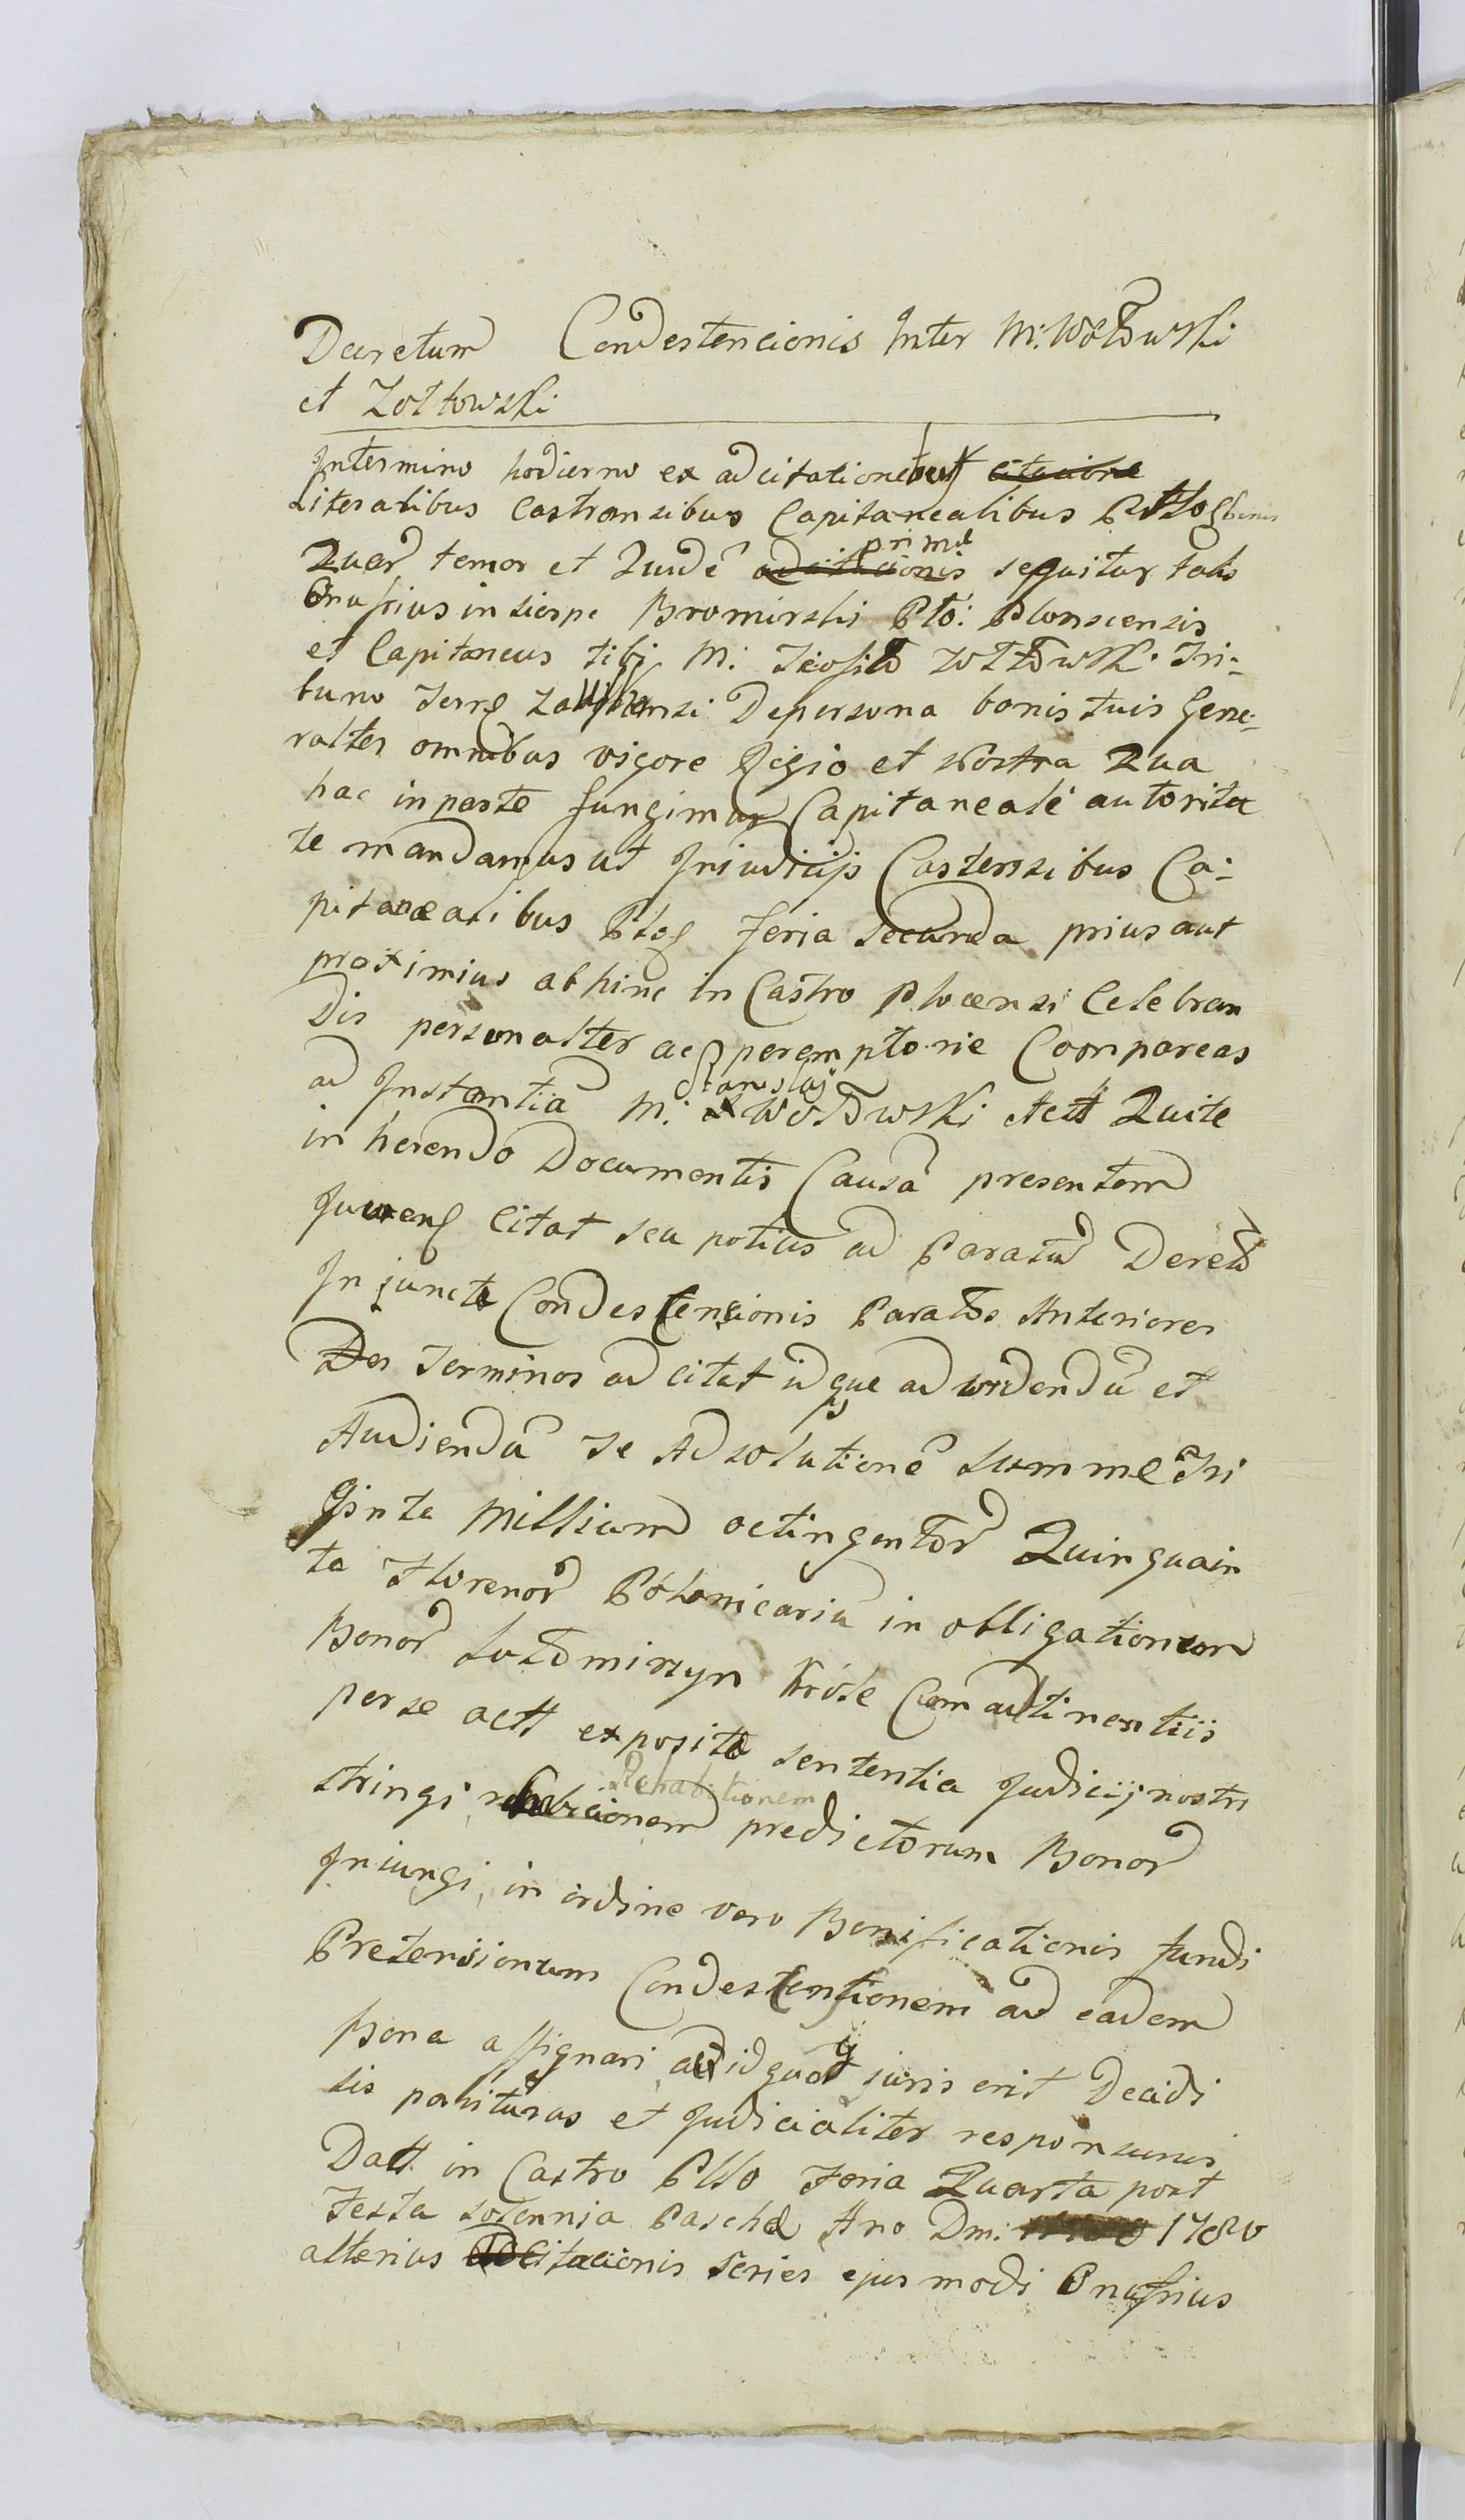 Decretum Condestencionis Inter M: Wołłowski
et Zołtowski
Intermino hodierno ex adcitationebus citacione
Literalibus Castrensibus Capitanealibus
Quar tenor et Quidē adcitacionis prima sequitur talis
Onufrius in Sierpc Bromirski Pło: Płonscensis
et Capitaneus tibi M: Teofilo Zołłowski Tri-
buno Terrę Depersona bonis tuis Gene-
ralter omnibus vigore Regio et Nostra Qua
hac in parte fungimur Capitaneale autorita
te mandamus ut Iniudicijs Castensibus Ca-
pitanealibus Płoc feria secunda prius aut
proximius abhinc in Castro Plocensi Celebran
Dis personalter ac peremptorie Compareas
ad Instantiā M: Stanislaj Wołłowski Actt Qui te
in herendo Documentis Causā presentem
Juvens Citat seu potius ad Paratū Decreto
Injuncte Condescensionis Paratos Anteriores
Des Terminos ad citat idque ad widendū et
Audiendū Te Ad solutionē Summe Tri
ginta Millium octingentor Quinquain
ta Florenor Polonicariū in obligationem
Bonor Sułomirzyn Króle Cum adtinentiis
per se actt exposite sententia Judicij nostri
stringi Rehabitionem predictorum Bonor
Iniungi, in ordine vero Bonificationis fundi
Pretensionum Condescensionem ad eadem
Bona assignari, ac id quod juris erit Decidi
sis pariturus et Judicialiter responsurus
Datt in Castro Płło Feria Quarta post
Festa solennia Pasche Ano Dni: 1780
alterius Adcitacionis Series ejus modi Onufrius